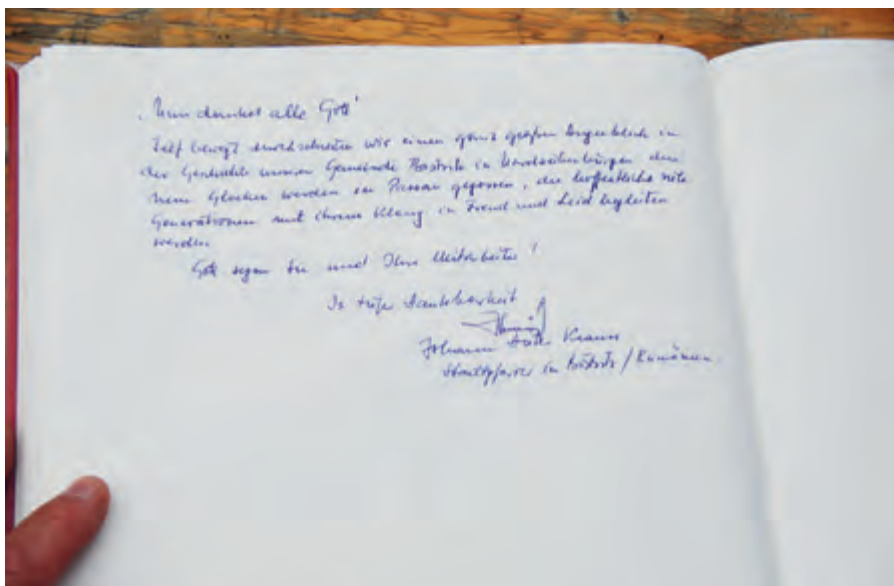 „Nun danket alle Gott“
Tief bewegt durchschreiten wir einen ganz großen Augenblick in
der Geschichte unserer Gemeinde Bistritz in Nordsiebenbürgen: die
neuen Glocken werden in Passau gegossen, die hoffentlich viele
Generationen mit ihrem Klang in Freud und Leid begleiten
werden.
Gott segne Sie und Ihre Mitarbeiter!
In tiefer Dankbarkeit
Johann Dieter Krauss
Stadtpfarrer in Bistritz/Rumänien